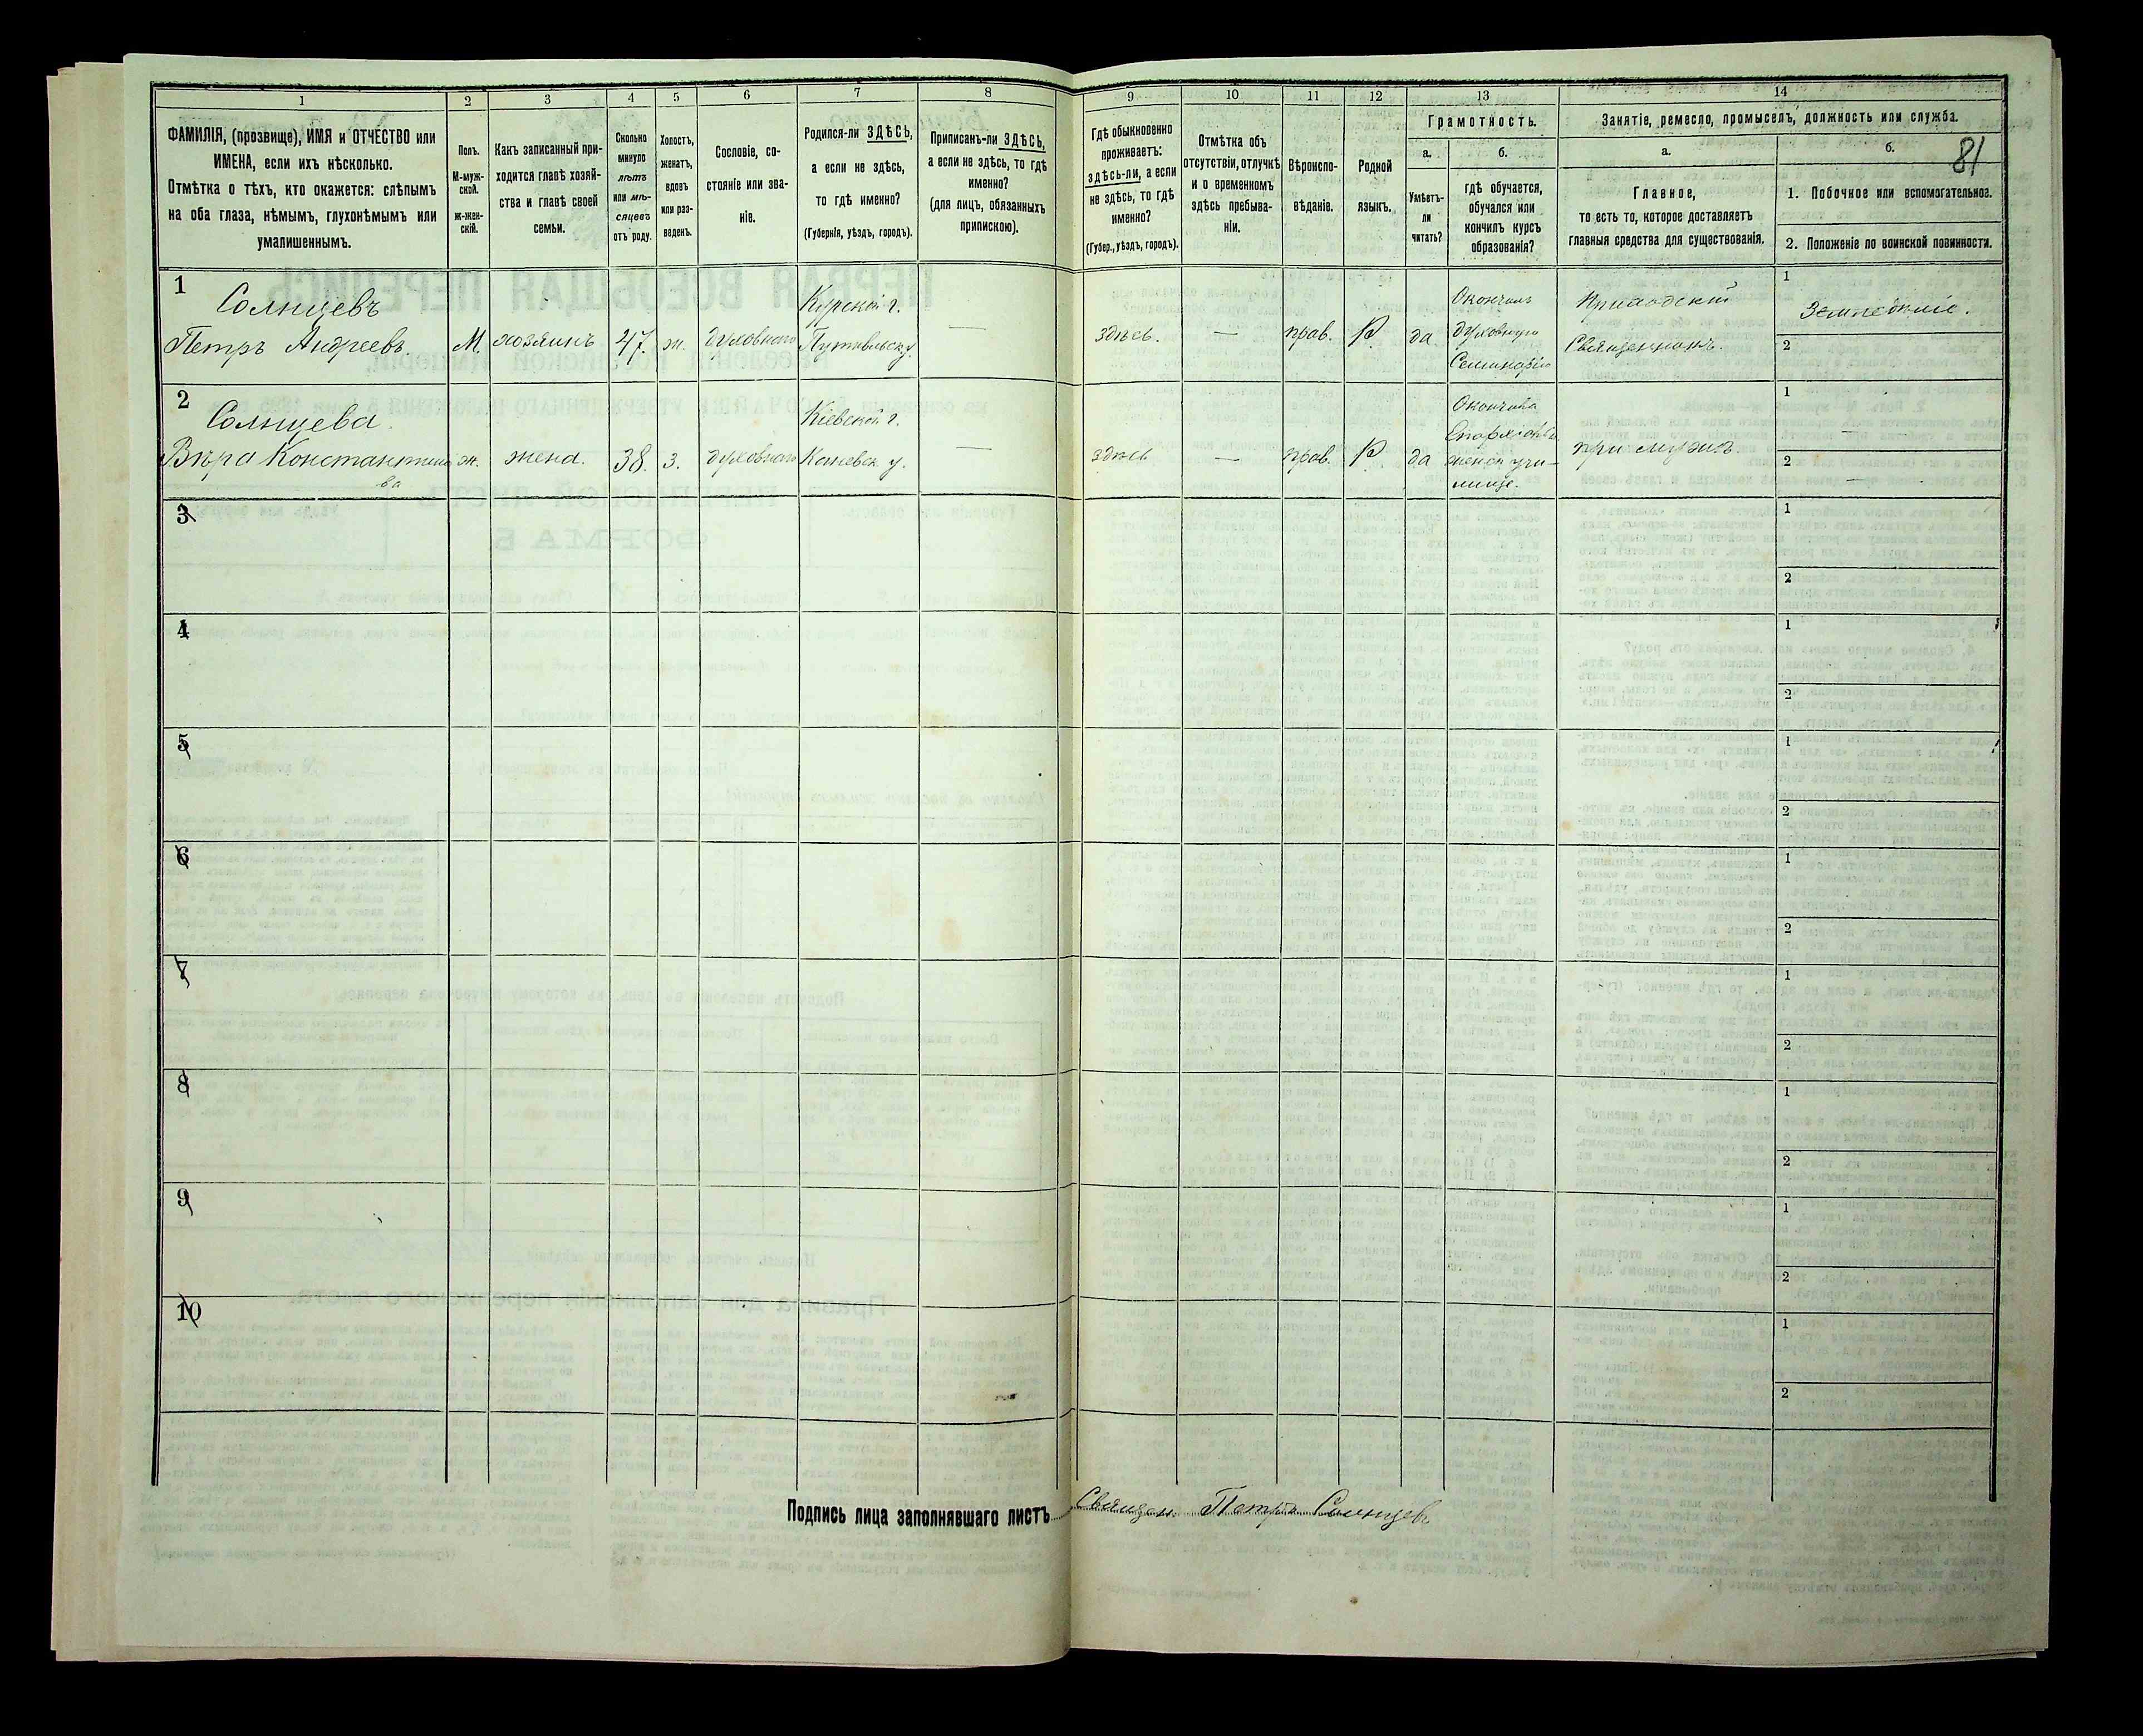 1
2
3
4
5
6
7
8
9
10
11
12
13
14
ФАМИЛІЯ, (прозвище), ИМЯ и ОТЧЕСТВО или
ИМЕНА, если ихъ нѣсколько.
Отмѣтка о тѣхъ, кто окажется: слѣпымъ
на оба глаза, нѣмымъ, глухонѣмымъ или
умалишеннымъ.
Полъ.
М-муж-
ской.
ж-жен-
скій.
Какъ записанный при-
ходится главѣ хозяй-
ства и главѣ своей
семьи.
Сколько
минуло
лѣтъ
или мѣ-
сяцевъ
отъ роду.
Холостъ,
женатъ,
вдовъ
или раз-
веденъ.
Сословіе, со-
стояніе или зва-
ніе.
Родился-ли ЗДѢСЬ,
а если не здѣсь,
то гдѣ именно?
(Губернія, уѣздъ, городъ).
Приписанъ-ли ЗДѢСЬ,
а если не здѣсь, то гдѣ
именно?
(для лицъ, обязанныхъ
припискою).
Гдѣ обыкновенно
проживаетъ:
здѣсь-ли, а если
не здѣсь, то гдѣ
именно?
(Губер., уѣздъ, городъ).
Отмѣтка объ
отсутствіи, отлучкѣ
и о временномъ
здѣсь пребыва-
ніи.
Вѣроиспо-
вѣданіе.
Родной
языкъ.
Грамотность.
а.
Умѣетъ-
ли
читать?
б.
гдѣ обучается,
обучался или
кончилъ курсъ
образованія?
Занятіе, ремесло, промыселъ, должность или служба.
а.
Главное,
то есть то, которое доставляетъ
главныя средства для существованія.
б.
81
1. Побочное или вспомогательное.
2. Положеніе по воинской повинности.
1
Солнцевъ
Петръ Андреевъ
М.
хозяинъ
47.
ж.
духовнаго
Курской г.
Путивльск. у.
—
здѣсь.
—
прав.
Р.
да
Окончилъ
духовную
Семинарію
Приходскій
Священникъ.
1
Земледѣліе.
2
2
Солнцева
Вѣра Константино
ва
ж.
жена.
38.
з.
духовнаго
Кіевской г.
Каневск. у.
—
здѣсь
—
прав.
Р.
да
Окончила
Епархіальн.
женск. учи-
лище.
при мужѣ.
1
—
2
—
3
1
2
4
1
2
5
1
2
6
1
2
7
1
2
8
1
2
9
1
2
10
1
2
Подпись лица заполнявшаго листъ Священ. Петръ Солнцевъ